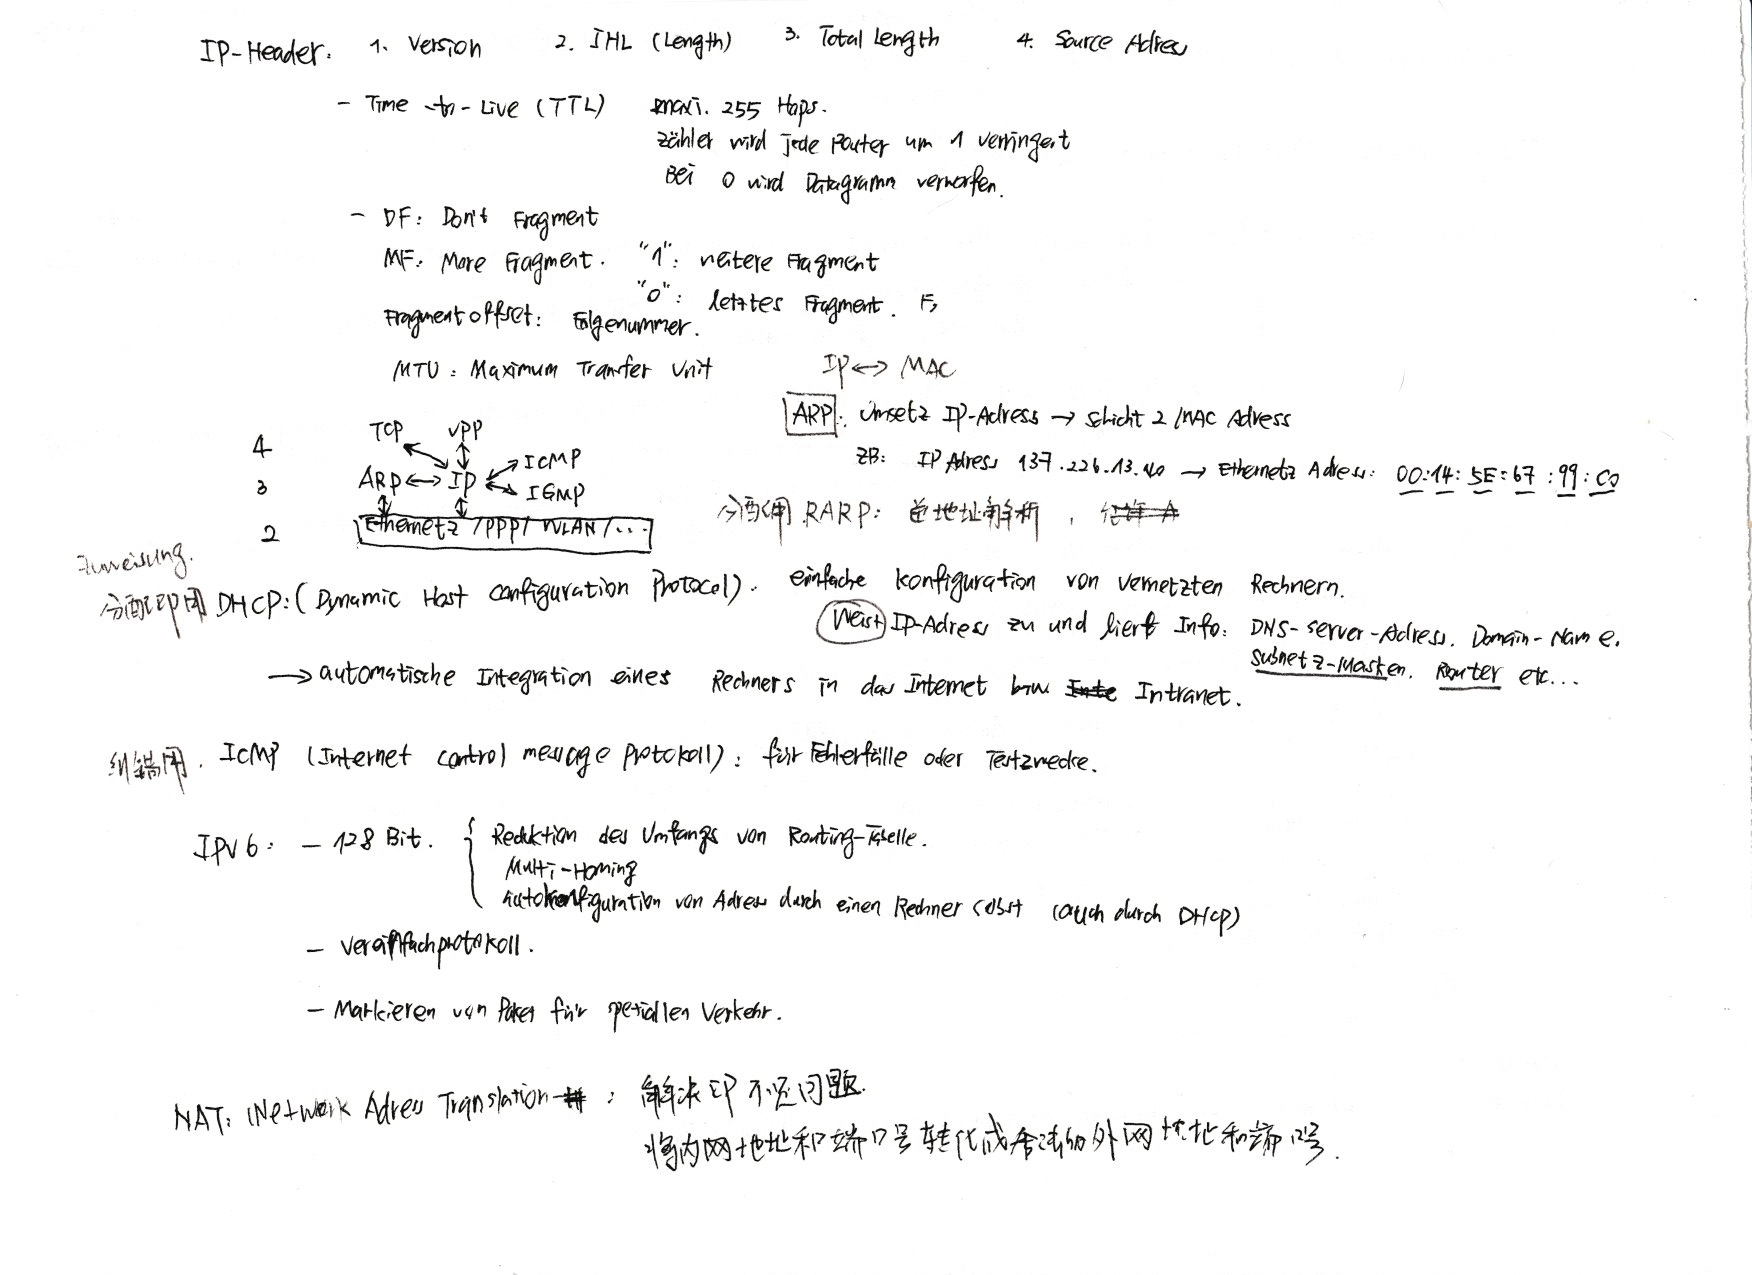 IP-Header: 1. Version 2. IHL (Length) 3. Total Length 4. Source Adress
- Time-to-Live (TTL) maxi. 255 Hops.
Zähler wird jede Router um 1 verringert
Bei 0 wird Datagramm verworfen.
- DF: Don't Fragment
MF: More Fragment. "1": weitere Fragment
"0": letztes Fragment.
Fragmentoffset: Folgenummer.
MTU: Maximum Transfer Unit
IP ↔ MAC
ARP: Umsetz IP-Adress → Schicht 2 MAC Adress
ZB: IP Adress 137.226.13.40 → Ethernetz Adress: 00:14:5E:67:99:C0
4 TCP UPP
3 ARP ↔ IP ICMP
IGMP
2 Ethernetz /PPP/ WLAN/...
RARP: 逆地址解析,
Zuweisung.
分配IP用 DHCP: (Dynamic Host configuration Protocol). einfache Konfiguration von vernetzten Rechnern.
Weist IP-Adress zu und lieft Info: DNS-Server-Adress. Domain-Name.
Subnetz-Masken. Router etc...
→ automatische Integration eines Rechners in das Internet bzw Intranet.
纠错用. ICMP (Internet control message protokoll): für Fehlerfälle oder Testzwecke.
IPV6: - 128 Bit. Reduktion des Umfangs von Routing-Tabelle.
Multi-Homing
Autokonfiguration von Adress durch einen Rechner selbst (auch durch DHCP)
- Vereinfachprotokoll.
- Markieren von Paket für speziallen Verkehr.
NAT: (Network Adress Translation : 解决IP不足问题.
将内网地址和端口号转化成合法的外网地址和端口号.